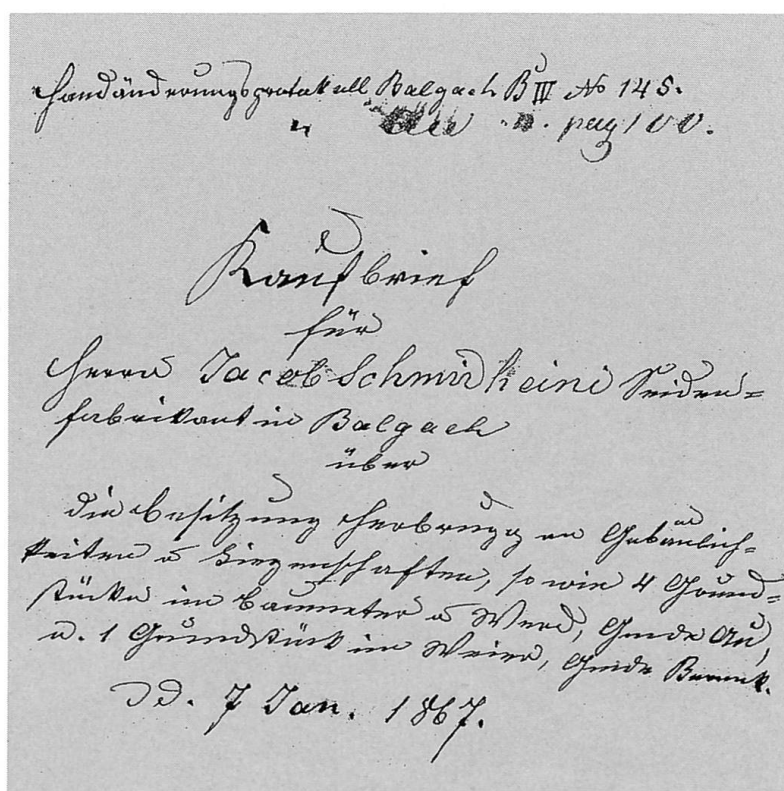 Handänderungsprotokoll Balgach B III No 145.
" " pag 100.
Kaufbrief
für
Herrn Jacob Schmidheini Seiden=
fabrikant in Balgach
über
die Besitzung Heerbrugg an Gebäulich=
keiten u Liegenschaften, so wie 4 Grund=
stücke im u Werd, Gmde Au,
u. 1 Grundstück im Weier, Gmde Bernek.
dd. 7 Jan. 1867.